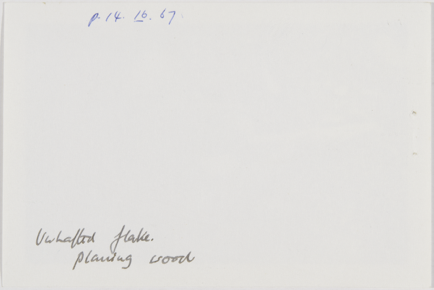 p. 14. 16. 67.
Unhafted flake.
planing wood